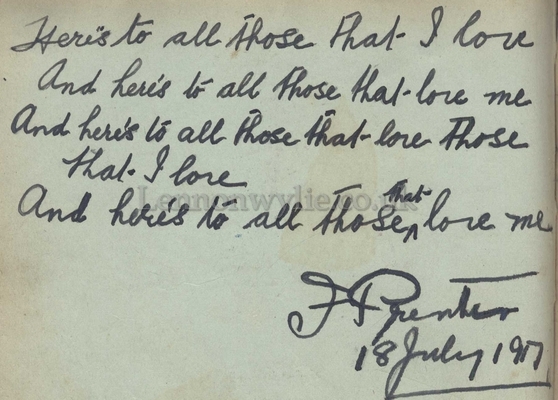 Here's to all those that I love
And here's to all those that love me
And here's to all those that love those
that I love
Lennonwylie.co.uk
And here's to all those that love me
18 July 1917